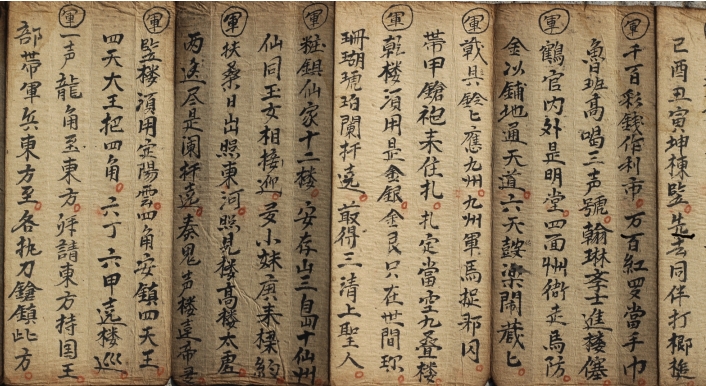 己酉丑寅坤棟監先去同伴打榔槌
軍
千百彩錢作利市万百紅罗當手巾
魯班高喝三声號翰琳李士進樓塞
軍
鶴官内外是明堂四面州衙走馬防
金沙鋪地通天道六天鼓樂鬧藏匕
軍
戟具鈴匕應九州九州軍馬捉邪囚
帶甲鎗袍来住扎扎定當空九叠楼
軍
乾楼須用是金銀金艮只在世間
珊瑚琥珀闌杆遶取得三清上聖人
軍
粧鎖仙家十二楼安存山三島十仙州
仙同玉女相接迎安小妹廣奏樑約
軍
扶桑日出照東河照見楼高楼大
两邊尽是阑杆遶奏鬼声楼這帝
軍
監楼須用定陽雲四角安鎮四天王
四天大王把四角六丁六甲遶楼巡
軍
一声龍角至東方拜請東方持国王
部帶軍兵東方至各执刀鎗鎮此方